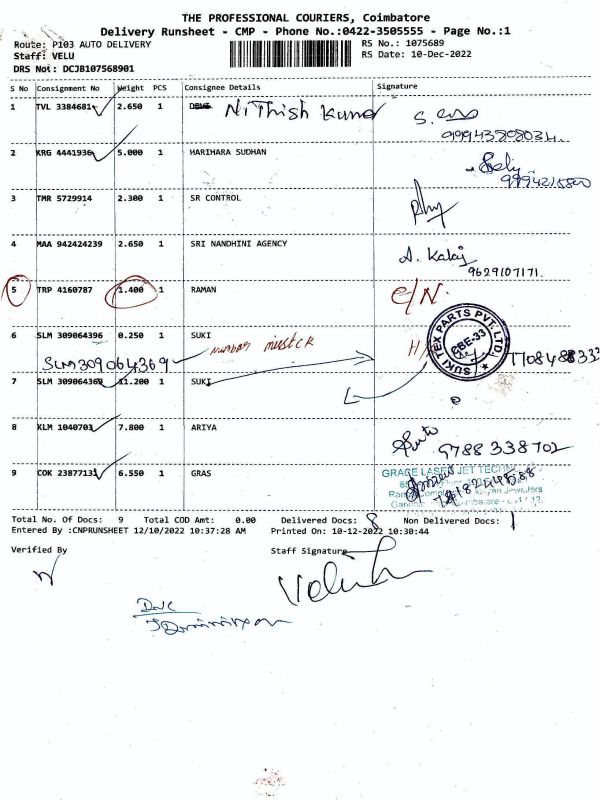 THE PROFESSIONAL COURIERS, Coimbatore
Delivery Runsheet - CMP - Phone No.:0422-3505555 - Page No.:1
Route: P103 AUTO DELIVERY RS No.: 1075689
Staff: VELU RS Date: 10-Dec-2022
DRS No1: DCJB107568901
S No Consignment No Weight PCS Consignee Details Signature
1 TVL 3384681 2.650 1 Nithish
9994358034
2 KRG 4441936 5.000 1 HARIHARA SUDHAN
3 TMR 5729914 2.300 1 SR CONTROL
4 MAA 942424239 2.650 1 SRI NANDHINI AGENCY
9629107171
5 TRP 4160787 1.400 1 RAMAN C/N.
6 SLM 309064396 0.250 1 SUKI
SLM309064369
SUKI TEX PARTS PVT. LTD.
CBE-33
7 SLM 309064369 11.200 1 SUKI
8 KLM 1040703 7.800 1 ARIYA
9788 338702
9 COK 23877131 6.550 1 GRAS
GRACE LASER JET
Total No. Of Docs: 9 Total COD Amt: 0.00 Delivered Docs: 8 Non Delivered Docs: 1
Entered By :CNPRUNSHEET 12/10/2022 10:37:28 AM Printed On: 10-12-2022 10:30:44
Verified By Staff Signature